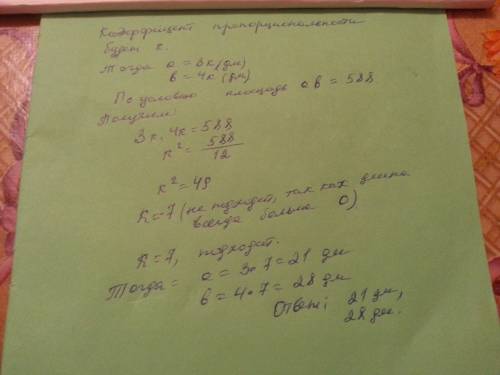 Коэффициент пропорциональности
будет k.
Тогда a = 3k (дм)
b = 4k (дм)
По условию площадь ab = 588
Получим:
3k · 4k = 588
k² = 588/12
k² = 49
k = -7 (не подходит, так как длина
всегда больше 0)
k = 7, подходит.
Тогда a = 3·7 = 21 дм
b = 4·7 = 28 дм
Ответ: 21 дм,
28 дм.